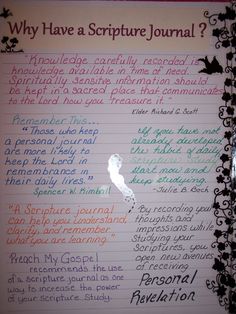 Why Have a Scripture Journal?
"Knowledge carefully recorded is
knowledge available in time of need.
Spiritually sensitive information should
be kept in a sacred place that communicates
to the Lord how you treasure it."
Elder Richard G. Scott
Remember This...
"Those who keep
a personal journal
are more likely to
keep the Lord in
remembrance in
their daily lives."
Spencer W. Kimball
If you have not
already developed
the habit of daily
Scripture Study
start now and
keep studying.
-Julie B. Beck
"A Scripture journal
can help you understand,
clarity, and remember
what you are learning."
Preach My Gospel
recommends the use
of a scripture journal as one
way to increase the power
of your Scripture Study.
By recording your
thoughts and
impressions while
Studying your
Scriptures, you
open new avenues
of receiving
Personal
Revelation